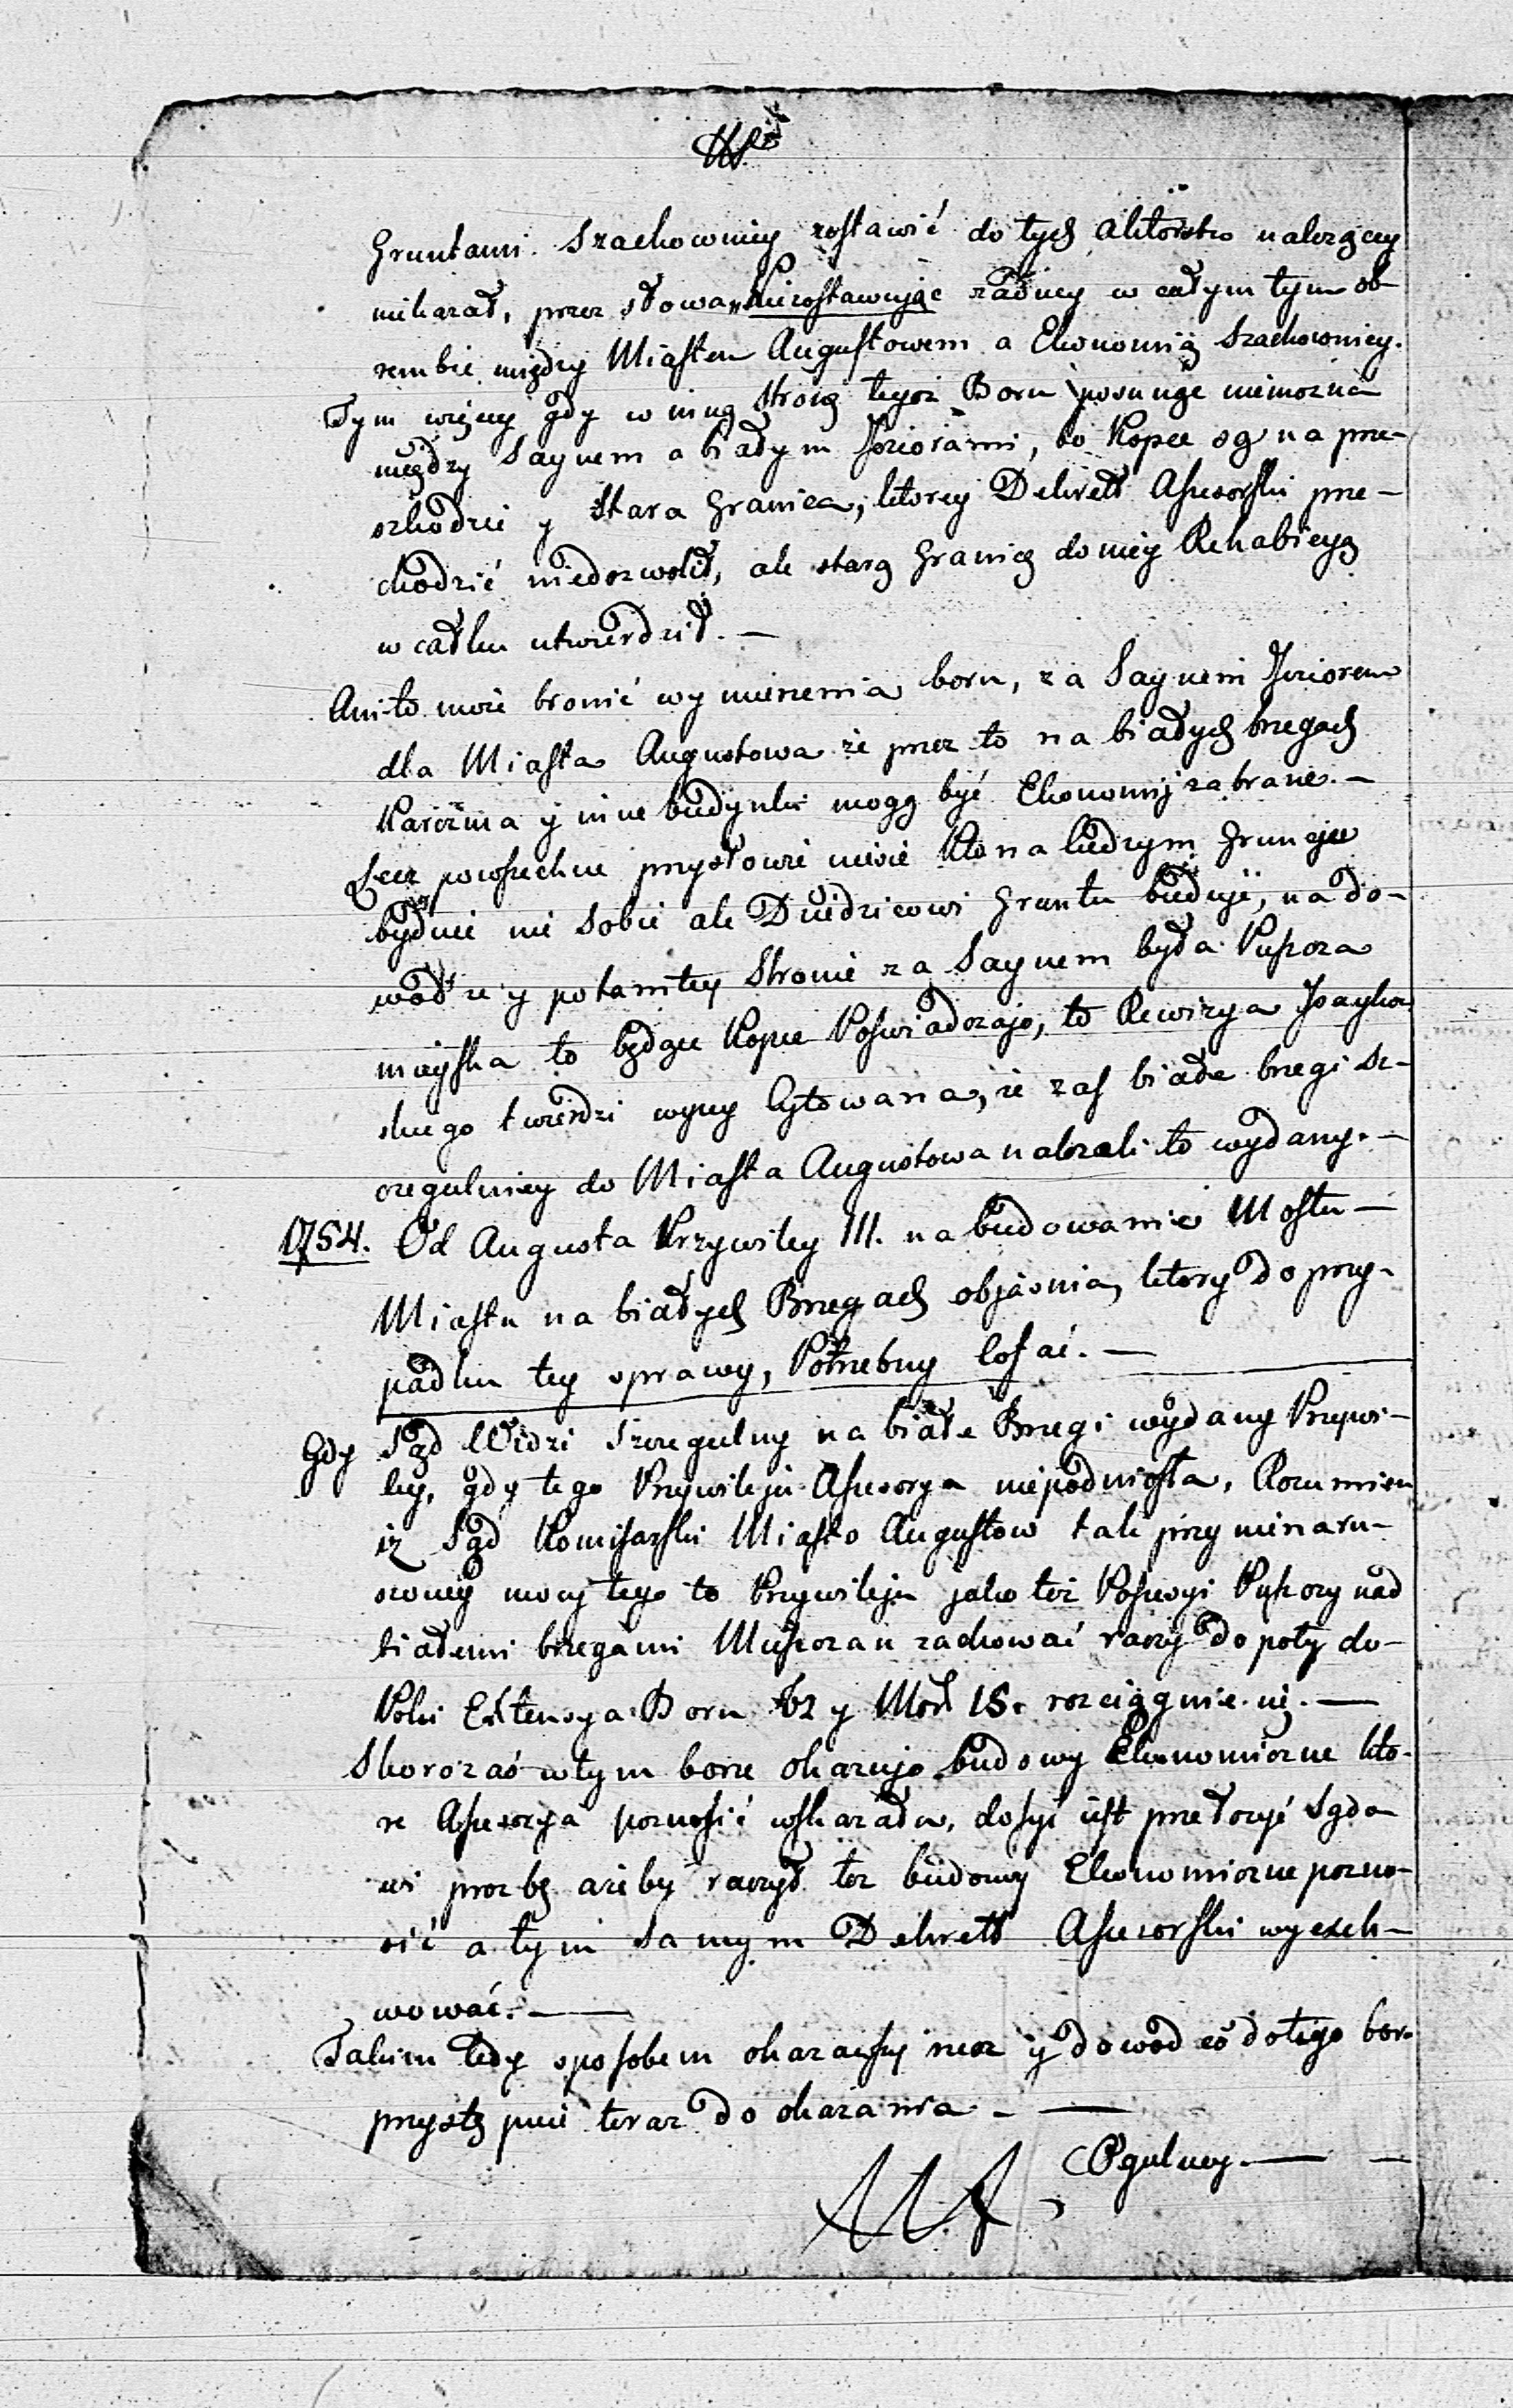 Gruntami Szachownicy zostawić do tych aktorstwo należącey
niekazał, przez słowa „Niezostawując żadney w całym tym ob-
rembie między Miastem Augustowem a Ekonomią Szachownicy.
Tym więcey gdy w inną stronę tegoż Boru posunąć niemożna
między Saynem a białym Jeziorami, bo kopce są na prze-
szkodzie y stara Granica, ktorey Dekrett Assesorski prze-
chodzić niedozwolił, ale starą Granicę do niey Rehabicyą
w całku utwierdził. —
Ani to może bronić wymierzenia boru, za Saynem Jeziorem
dla Miasta Augustowa że przez to na białych brzegach
Karczma y inne budynki mogą być Ekonomij zabrane. —
Lecz powszechne przysłowie niesie Kto na cudzym gruncie
buduie nie sobie ale Dziedzicowi gruntu buduje, na do-
wod że y po tamtey stronie za Saynem była Puszcza
mieyska to będące kopce Poświadczajo, to Rewizya Isayko-
skiego twierdzi wyżey Cytowana, że zaś białe brzegi sz-
czegulniey do Miasta Augustowa należeli to wydany. —
1754. Od Augusta Przywiley III. na budowanie Mostu —
Miastu na białych Brzegach objaśnia, ktory do przy-
padku tey sprawy, Potrzebny losać. —
Gdy Sąd Widzi szczegulny na białe Brzegi wydany Przywi-
ley, gdy tego Przywileju Assesorya niepodniosła, Rozumiem
iż Sąd Komisarski Miasto Augustow tak przy nienaru-
szoney mocy tego to Przywileju jako też Possesyi Puszczy nad
białemi brzegami Mieszczan zachować raczy do poty do-
Poki Extensya Boru 62 y Mor 15. rozciągnie się. —
Skoro zaś w tym borze okazujo budowy Ekonomiczne kto-
re Assesorya poznosić wskazała, dosyć iest przełożyć Sądo-
wi prozbę ażeby raczył też budowy Ekonomiczne pozno-
sić a tym samym Dekrett Assesorski wyexek-
wować. —
Takim tedy sposobem okazawszy rzecz y dowod co do tego boru
przystępuie teraz do okazania — —
Ogulney. — —